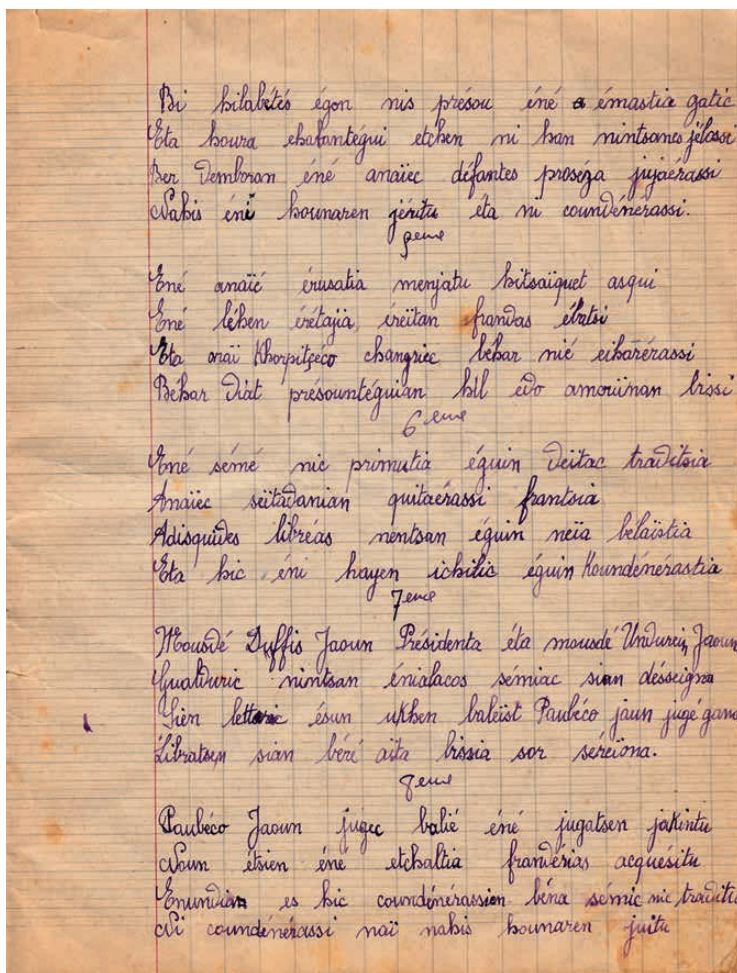 Bi hilabétés égon nis présou éné émastia gatic
Eta houra ehafantégui etchen ni han nintsanes jélossi
Ber demboran éné anaïec défantes proséga jujaérassi
Nahis éné hounaren jéritu éta ni coundénérassi.
5eme
Ené anaïé érusatia menjatu hitsaïquet asqui
Ené léhen érétajia, éréitan frandas ébatsi
Eta oraï Khorpitséco changriec béhar nié eiharérassi
Béhar diat présountéguian hil édo amouinan bissi
6 eme
Ené sémé nic primutia éguin deitac traditsia
Anaïec seitadanian quitaérassi frantsia
Adisquides libréas nentsan éguin neïa belaïstia
Eta hic éni hayen ichilic éguin Koundénérastia
7eme
Mousdé Duffis Jaoun Présidenta éta mousdé Undurein Jaoun
Gualduric nintsan énialacos sémiac sian désseigna
Sien lettaric ésun ukhen baleïst Paubéco jaun jugé gana
Libratsen sian béré aïta bissia sor séreiona.
8eme
Paubéco Jaoun jugec balié éné jugatsen jakintu
Noun étsien éné etchaltia franderias acquésitu
Enundian es hic coundénérassien béna sémic nic traditu
Ni coundénérassi naï nahis hounaren juitu